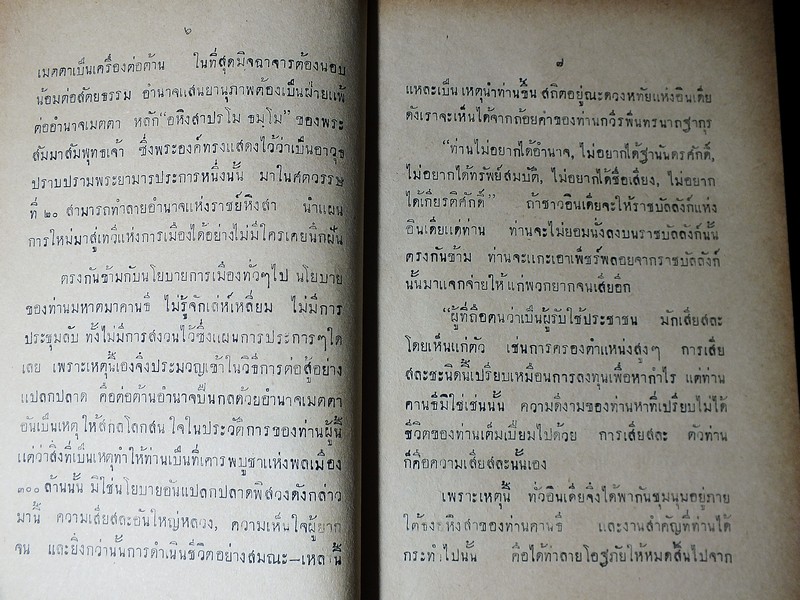 ๖
เมตตาเป็นเครื่องต่อต้าน ในที่สุดมิจฉาจารต้องนอบ
น้อมต่อสัตยธรรม อำนาจแสนยานุภาพต้องเป็นฝ่ายแพ้
ต่ออำนาจเมตตา หลัก "อหิงสาปรโม ธมฺโม" ของพระ
สัมมาสัมพุทธเจ้า ซึ่งพระองค์ทรงแสดงไว้ว่าเป็นอาวุธ
ปราบปรามพระยามารประการหนึ่งนั้น มาในศตวรรษ
ที่ ๒๐ สามารถทำลายอำนาจแห่งราชย์หิงสา นำแผน
การใหม่มาสู่เทวีแห่งการเมืองได้อย่างไม่มีใครเคยนึกฝัน
ตรงกันข้ามกับนโยบายการเมืองทั่วๆไป นโยบาย
ของท่านมหาตมาคานธี ไม่รู้จักเล่ห์เหลี่ยม ไม่มีการ
ประชุมลับ ทั้งไม่มีการสงวนไว้ซึ่งแผนการประการๆใด
เลย เพราะเหตุนี้เองจึงประมวญเข้าในวิธีการต่อสู้อย่าง
แปลกปลาด คือต่อต้านอำนาจปืนกลด้วยอำนาจเมตตา
อันเป็นเหตุให้สกลโลกสนใจในประวัติการของท่านผู้นี้
แต่ว่าสิ่งที่เป็นเหตุทำให้ท่านเป็นที่เคารพบูชาแห่งพลเมือง
๓๐๐ ล้านนั้น มิใช่นโยบายอันแปลกปลาดพิสวงดังกล่าว
มานี้ ความเสียสละอันใหญ่หลวง, ความเห็นใจผู้ยาก
จน และยิ่งกว่านั้นการดำเนินชีวิตอย่างสมณะ—เหล่านี้
๗
แหละเป็นเหตุนำท่านขึ้น สถิตอยู่ณะดวงหทัยแห่งอินเดีย
ดังเราจะเห็นได้จากถ้อยคำของท่านกวีรพินทรนาถฐากุร
"ท่านไม่อยากได้อำนาจ, ไม่อยากได้ฐานันดรศักดิ์,
ไม่อยากได้ทรัพย์สมบัติ, ไม่อยากได้ชื่อเสียง, ไม่อยาก
ได้เกียรติศักดิ์" ถ้าชาวอินเดียจะให้ราชบัลลังก์แห่ง
อินเดียแด่ท่าน ท่านจะไม่ยอมนั่งลงบนราชบัลลังก์นั้น
ตรงกันข้าม ท่านจะแกะเอาเพ็ชร์พลอยจากราชบัลลังก์
นั้นมาแจกจ่ายให้แก่พวกยากจนเสียอีก
"ผู้ที่ถือตนว่าเป็นผู้รับใช้ประชาชน มักเสียสละ
โดยเห็นแก่ตัว เช่นการครองตำแหน่งสูงๆ การเสีย
สละชะนิดนี้เปรียบเหมือนการลงทุนเพื่อหากำไร แต่ท่าน
คานธีมิใช่เช่นนั้น ความดีงามของท่านหาที่เปรียบไม่ได้
ชีวิตของท่านเต็มเปี่ยมไปด้วย การเสียสละ ตัวท่าน
ก็คือความเสียสละนั้นเอง
เพราะเหตุนี้ ทั่วอินเดียจึงได้พากันชุมนุมอยู่ภาย
ใต้ธงอหิงสาของท่านคานธี และงานสำคัญที่ท่านได้
กระทำไปนั้น คือได้ทำลายโอฐภัยให้หมดสิ้นไปจาก